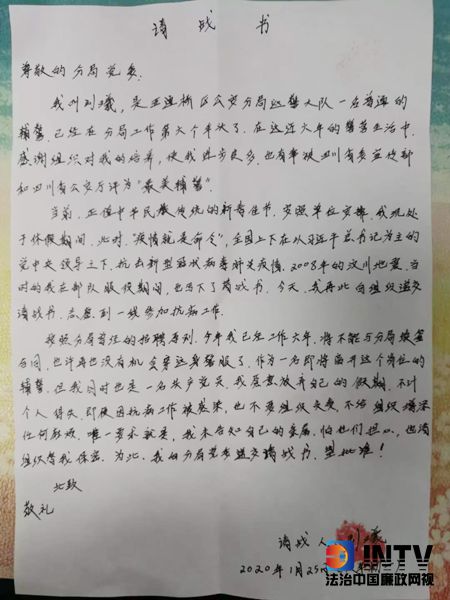 请战书
尊敬的分局党委:
我叫刘曦,是五通桥区公安分局巡警大队一名普通的
辅警,已经在分局工作第六个年头了。在这近六年的警营生活中,
感谢组织对我的培养,使我进步良多,也有幸被四川省委宣传部
和四川省公安厅评为“最美辅警”。
当前,正值中华民族传统的新春佳节,按照单位安排,我现处
于休假期间,此时“疫情就是命令”,全国上下在以习近平总书记为主的
党中央领导之下,抗击新型冠状病毒肺炎疫情。2008年的汶川地震,当
时的我在部队服役期间,也写下了请战书。今天,我再次向组织递交
请战书,志愿到一线参加抗病工作。
按照分局首任的招聘原则,今年我已经工作六年,将不能与分局续签
合同,也许再也没有机会穿这身警服了。作为一名即将离开这个岗位的
辅警,但我同时也是一名共产党员,我愿意放弃自己的假期,不计
个人得失,即使因抗病工作被感染,也不要组织负责,不给组织增添
任何麻烦,唯一要求就是,我未告知自己的家属,怕他们担心,也请
组织替我保密。为此,我向分局党委递交请战书,望批准!
此致
敬礼
请战人:刘曦
2020年1月25日
JNTV
法治中国廉政网视